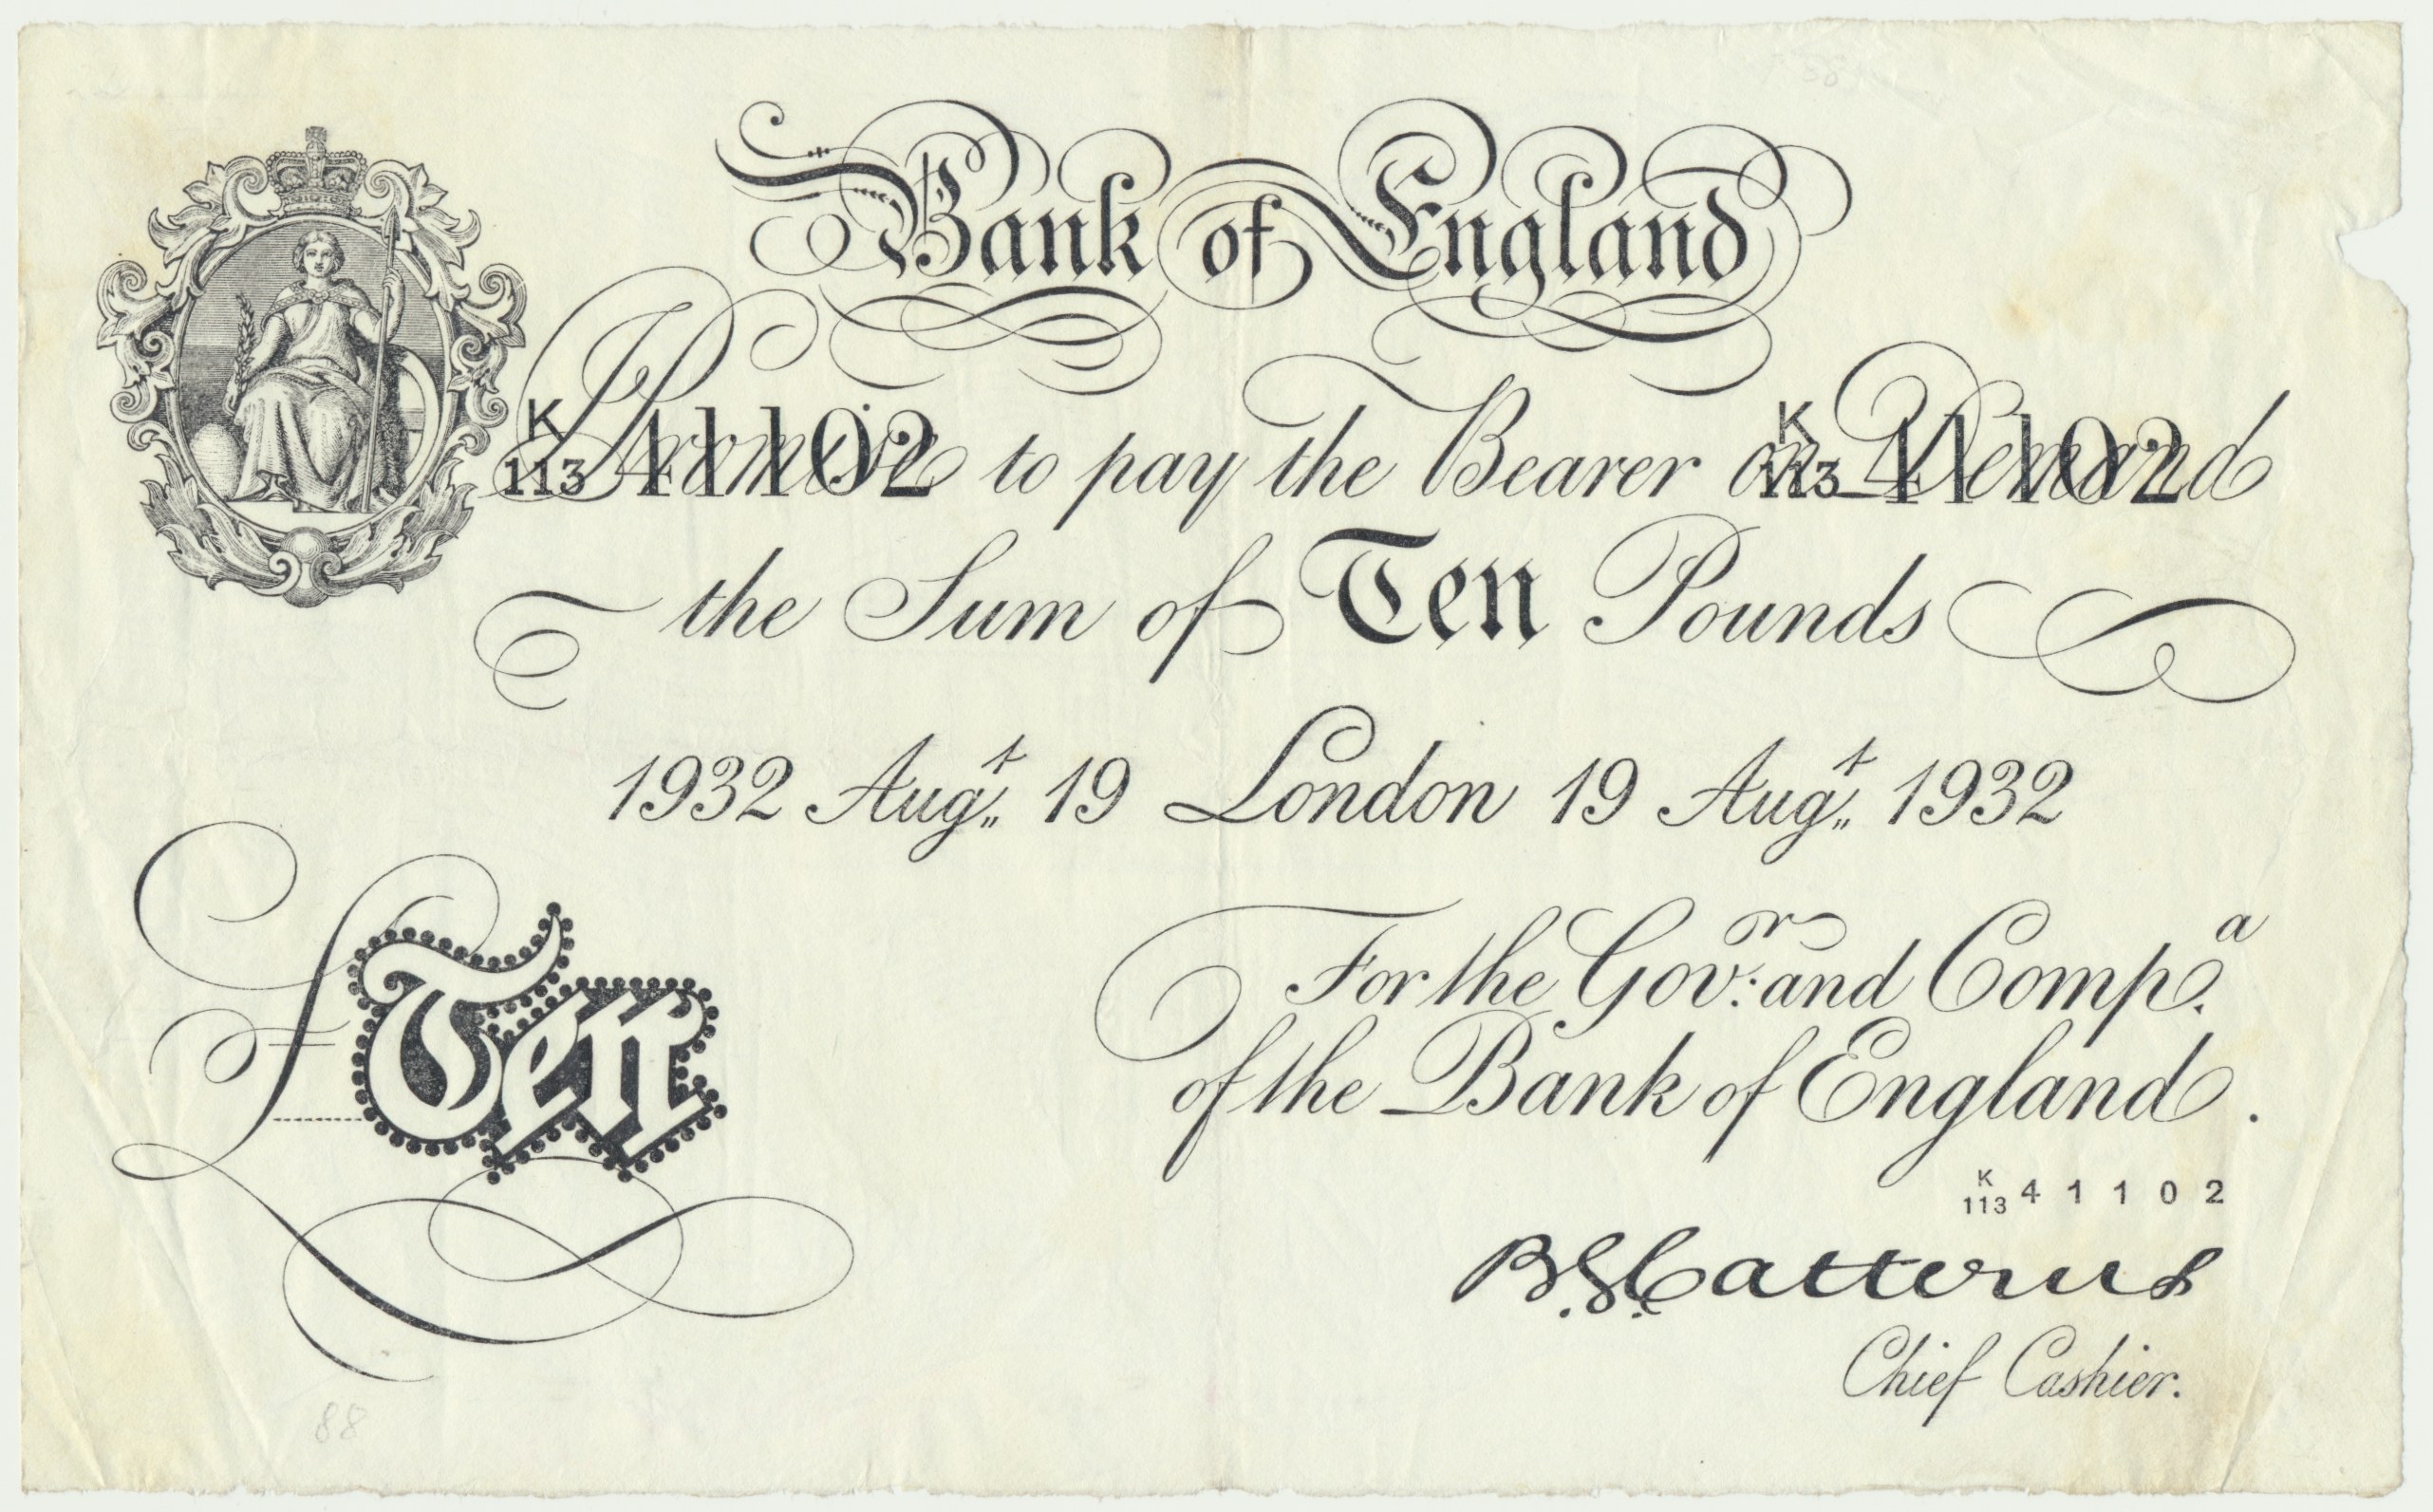 Bank of England
I Promise to pay the Bearer on Demand
K
113 41102
K
113 41102
the Sum of Ten Pounds
1932 Augt. 19 London 19 Augt. 1932
For the Govr: and Compa.
of the Bank of England.
£Ten
K
113 41102
B.G. Catterns
Chief Cashier.
88